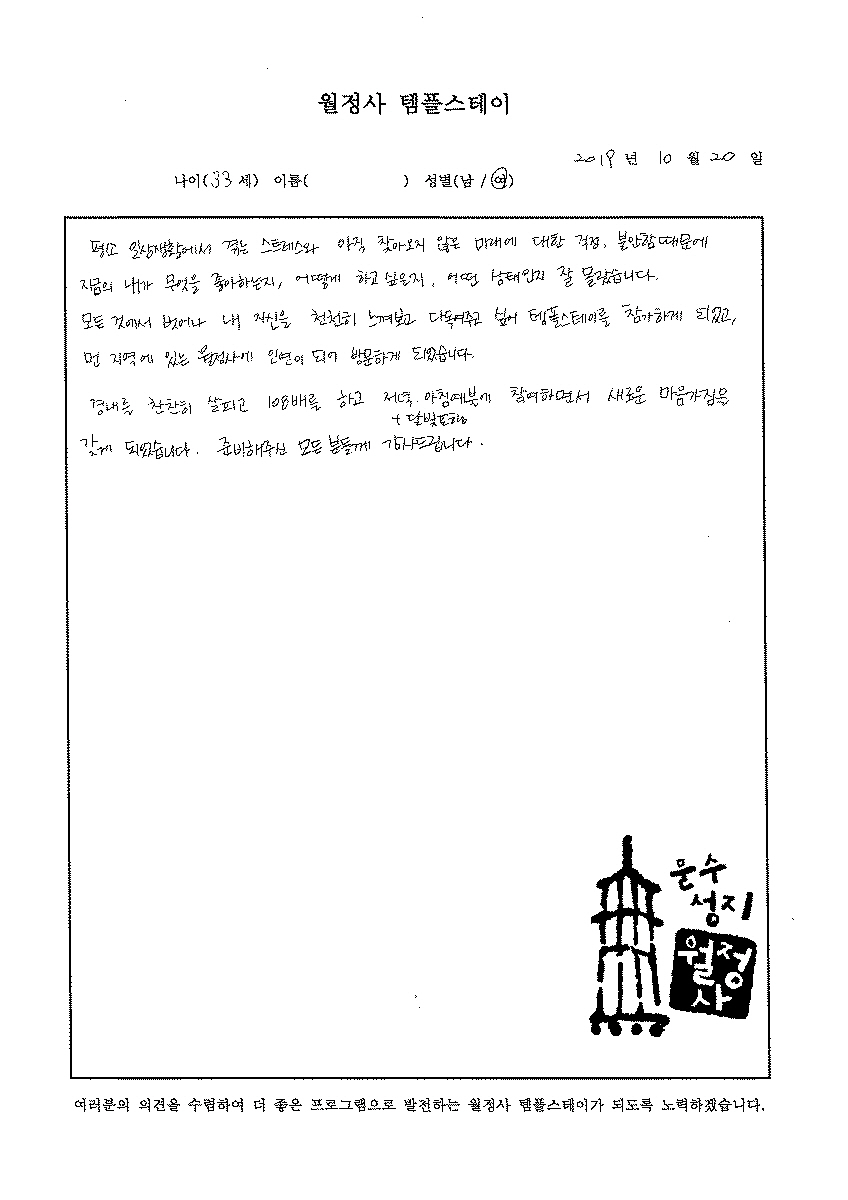 월정사 템플스테이
2019 년 10 월 20 일
나이(33 세) 이름( ) 성별(남 / 여)
평소 일상생활에서 겪는 스트레스와 아직 찾아오지 않은 미래에 대한 걱정, 불안함 때문에
지금의 내가 무엇을 좋아하는지, 어떻게 하고싶은지, 어떤 상태인지 잘 몰랐습니다.
모든 것에서 벗어나 내 자신을 천천히 느껴보고 다독여주고 싶어 템플스테이를 참가하게 되었고,
먼 지역에 있는 월정사에 인연이 되어 방문하게 되었습니다.
경내를 찬찬히 살피고 108배를 하고 저녁, 아침예불에 참여하면서 새로운 마음가짐을
+ 달빛포행
갖게 되었습니다. 준비해주신 모든 분들께 감사드립니다.
문수
성지
월정
사
여러분의 의견을 수렴하여 더 좋은 프로그램으로 발전하는 월정사 템플스테이가 되도록 노력하겠습니다.